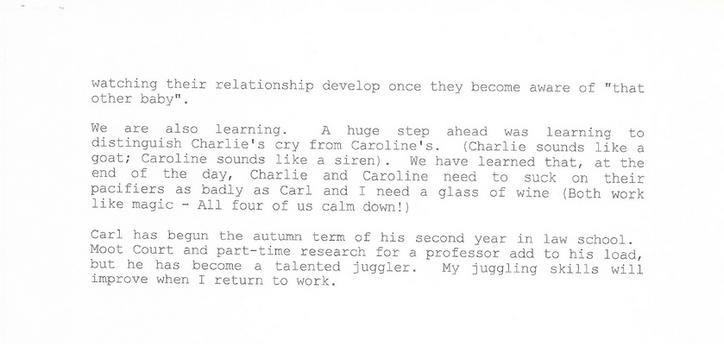 watching their relationship develop once they become aware of "that
other baby".
We are also learning. A huge step ahead was learning to
distinguish Charlie's cry from Caroline's. (Charlie sounds like a
goat; Caroline sounds like a siren). We have learned that, at the
end of the day, Charlie and Caroline need to suck on their
pacifiers as badly as Carl and I need a glass of wine (Both work
like magic - All four of us calm down!)
Carl has begun the autumn term of his second year in law school.
Moot Court and part-time research for a professor add to his load,
but he has become a talented juggler. My juggling skills will
improve when I return to work.